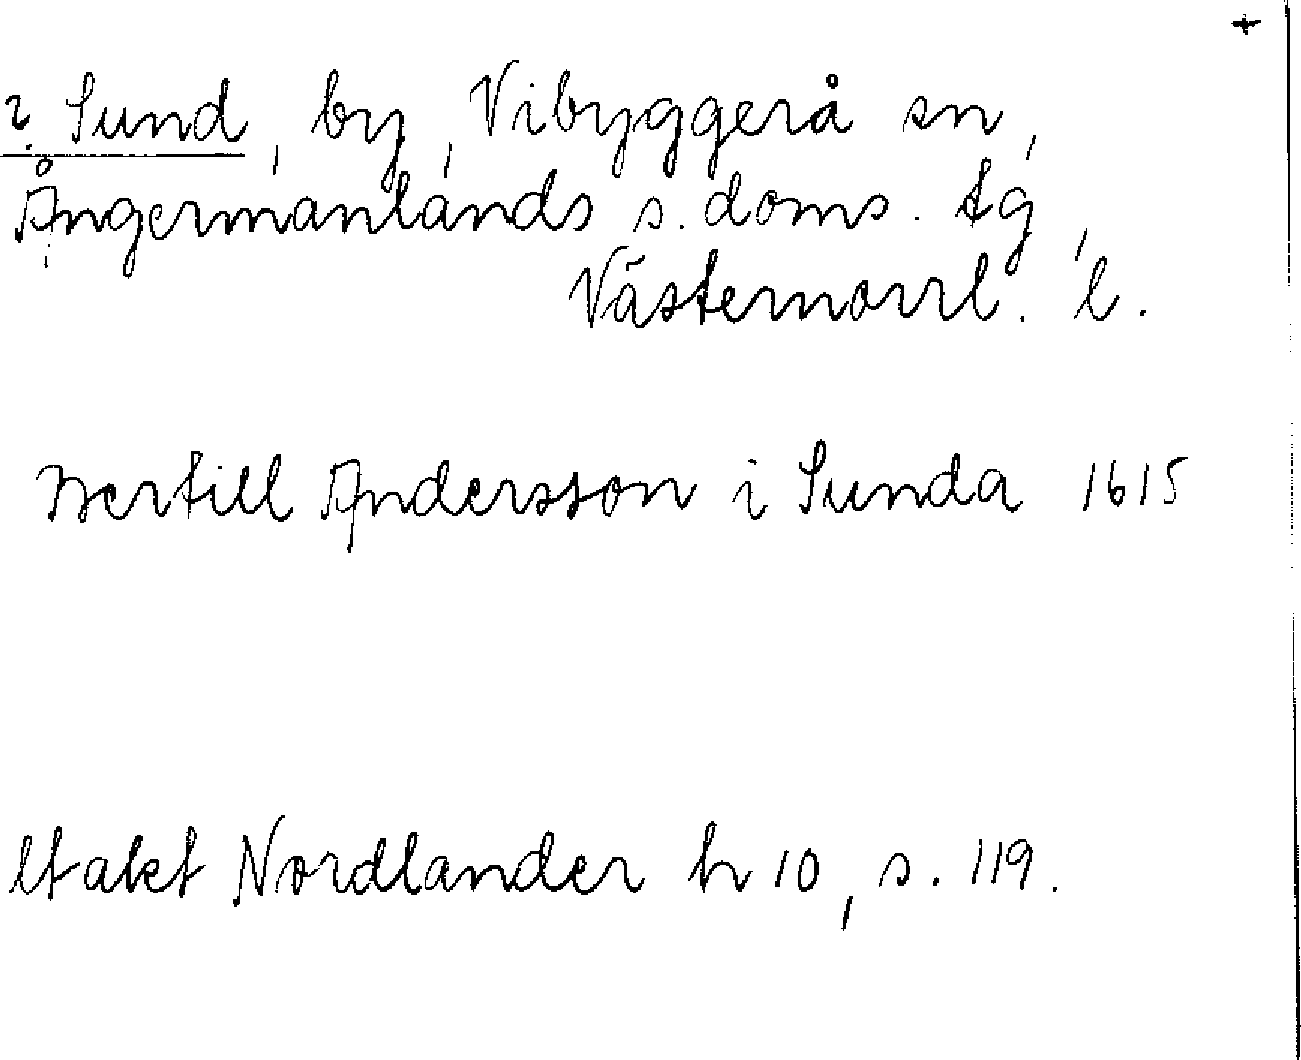 ? Sund, by, Vibyggerå sn,
Ångermanlands s. doms. tg,
Västernorrl. l.
Bertill Andersson i Sunda 1615
Utakt Nordlander h 10, s. 119.